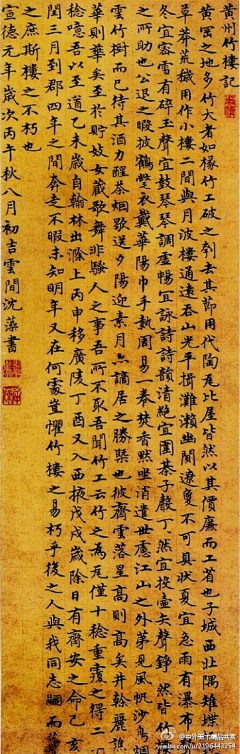 黃州竹樓記
黃岡之地多竹大者如椽竹工破之刳去其節用代陶瓦比屋皆然以其價廉而工省也子城西北隅雉堞
草莽荒穢用作小樓二間與月波樓通遠吞山光平揖灘瀨幽闃遼夐不可具狀夏宜急雨有瀑布
冬宜密雪有碎玉聲宜鼓琴琴調虛暢宜詠詩詩韻清絕宜圍棊子聲丁丁然宜投壺矢聲錚然皆竹樓
之所助也公退之暇披鶴氅衣戴華陽巾手執周易一卷焚香默坐消遣世慮江山之外第見風帆沙鳥煙
雲竹樹而已待其酒力醒茶烟歇送夕陽迎素月亦謫居之勝槩也彼齊雲落星高則高矣井幹麗譙
華則華矣至於貯妓女藏歌舞非騷人之事吾所不取吾聞竹工云竹之為瓦僅十稔重覆之得二十
稔噫吾以至道乙未歲自翰林出滁上丙申移廣陵丁酉又入西掖戊戌歲除日有齊安之命己亥
閏三月到郡四年之間奔走不暇未知明年又在何處豈懼竹樓之易朽乎後之人與我同志嗣而葺
之庶斯樓之不朽也
宣德元年歲次丙午秋八月初吉雲間沈藻書
@中外美术精品共赏
weibo.com/u/2196443754